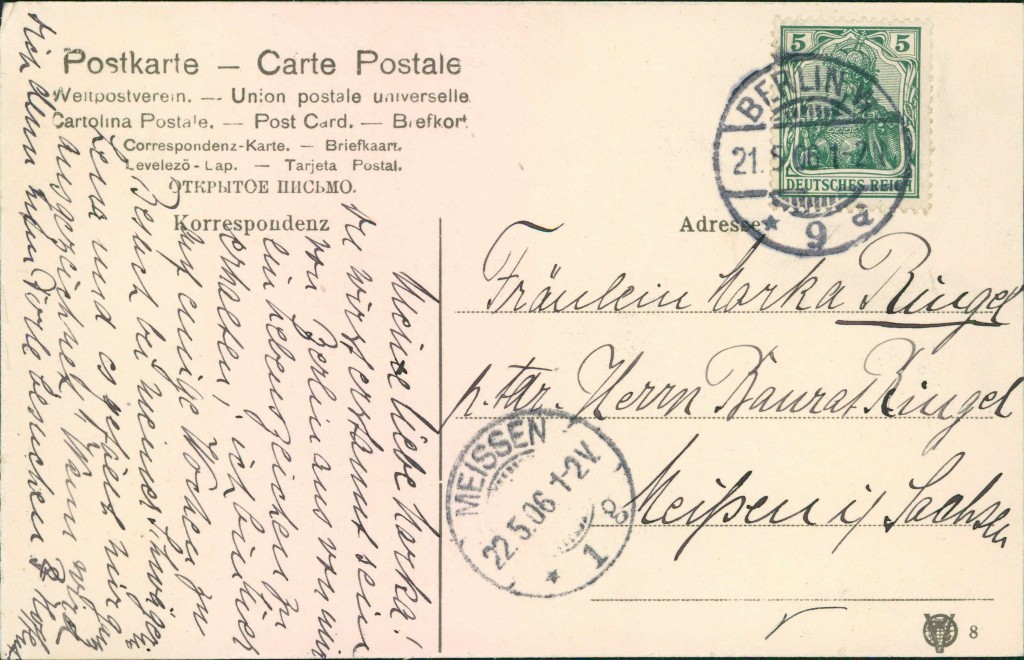 Postkarte — Carte Postale
Weltpostverein. — Union postale universelle
Cartolina Postale. — Post Card. — Brefkort
Correspondenz-Karte. — Briefkaart.
Levelező-Lap. — Tarjeta Postal.
ОТКРЫТОЕ ПИСЬМО.
Korrespondenz
Adresse
5 5
DEUTSCHES REICH
BERLIN W.
21.5.06 1-2N
* 9 a
Fräulein Ringel
Herrn Baurat Ringel
Meißen i/ Sachsen
MEISSEN
22.5.06 1-2V.
* 1
8
Meine liebe
Du wirst erstaunt sein
von Berlin aus von mir
ein Lebenszeichen zu
erhalten, ich bin hier
auf einige Wochen zu
Besuch bei meiner
und es gefällt mir ganz
ausgezeichnet. Wann wird
Dich denn